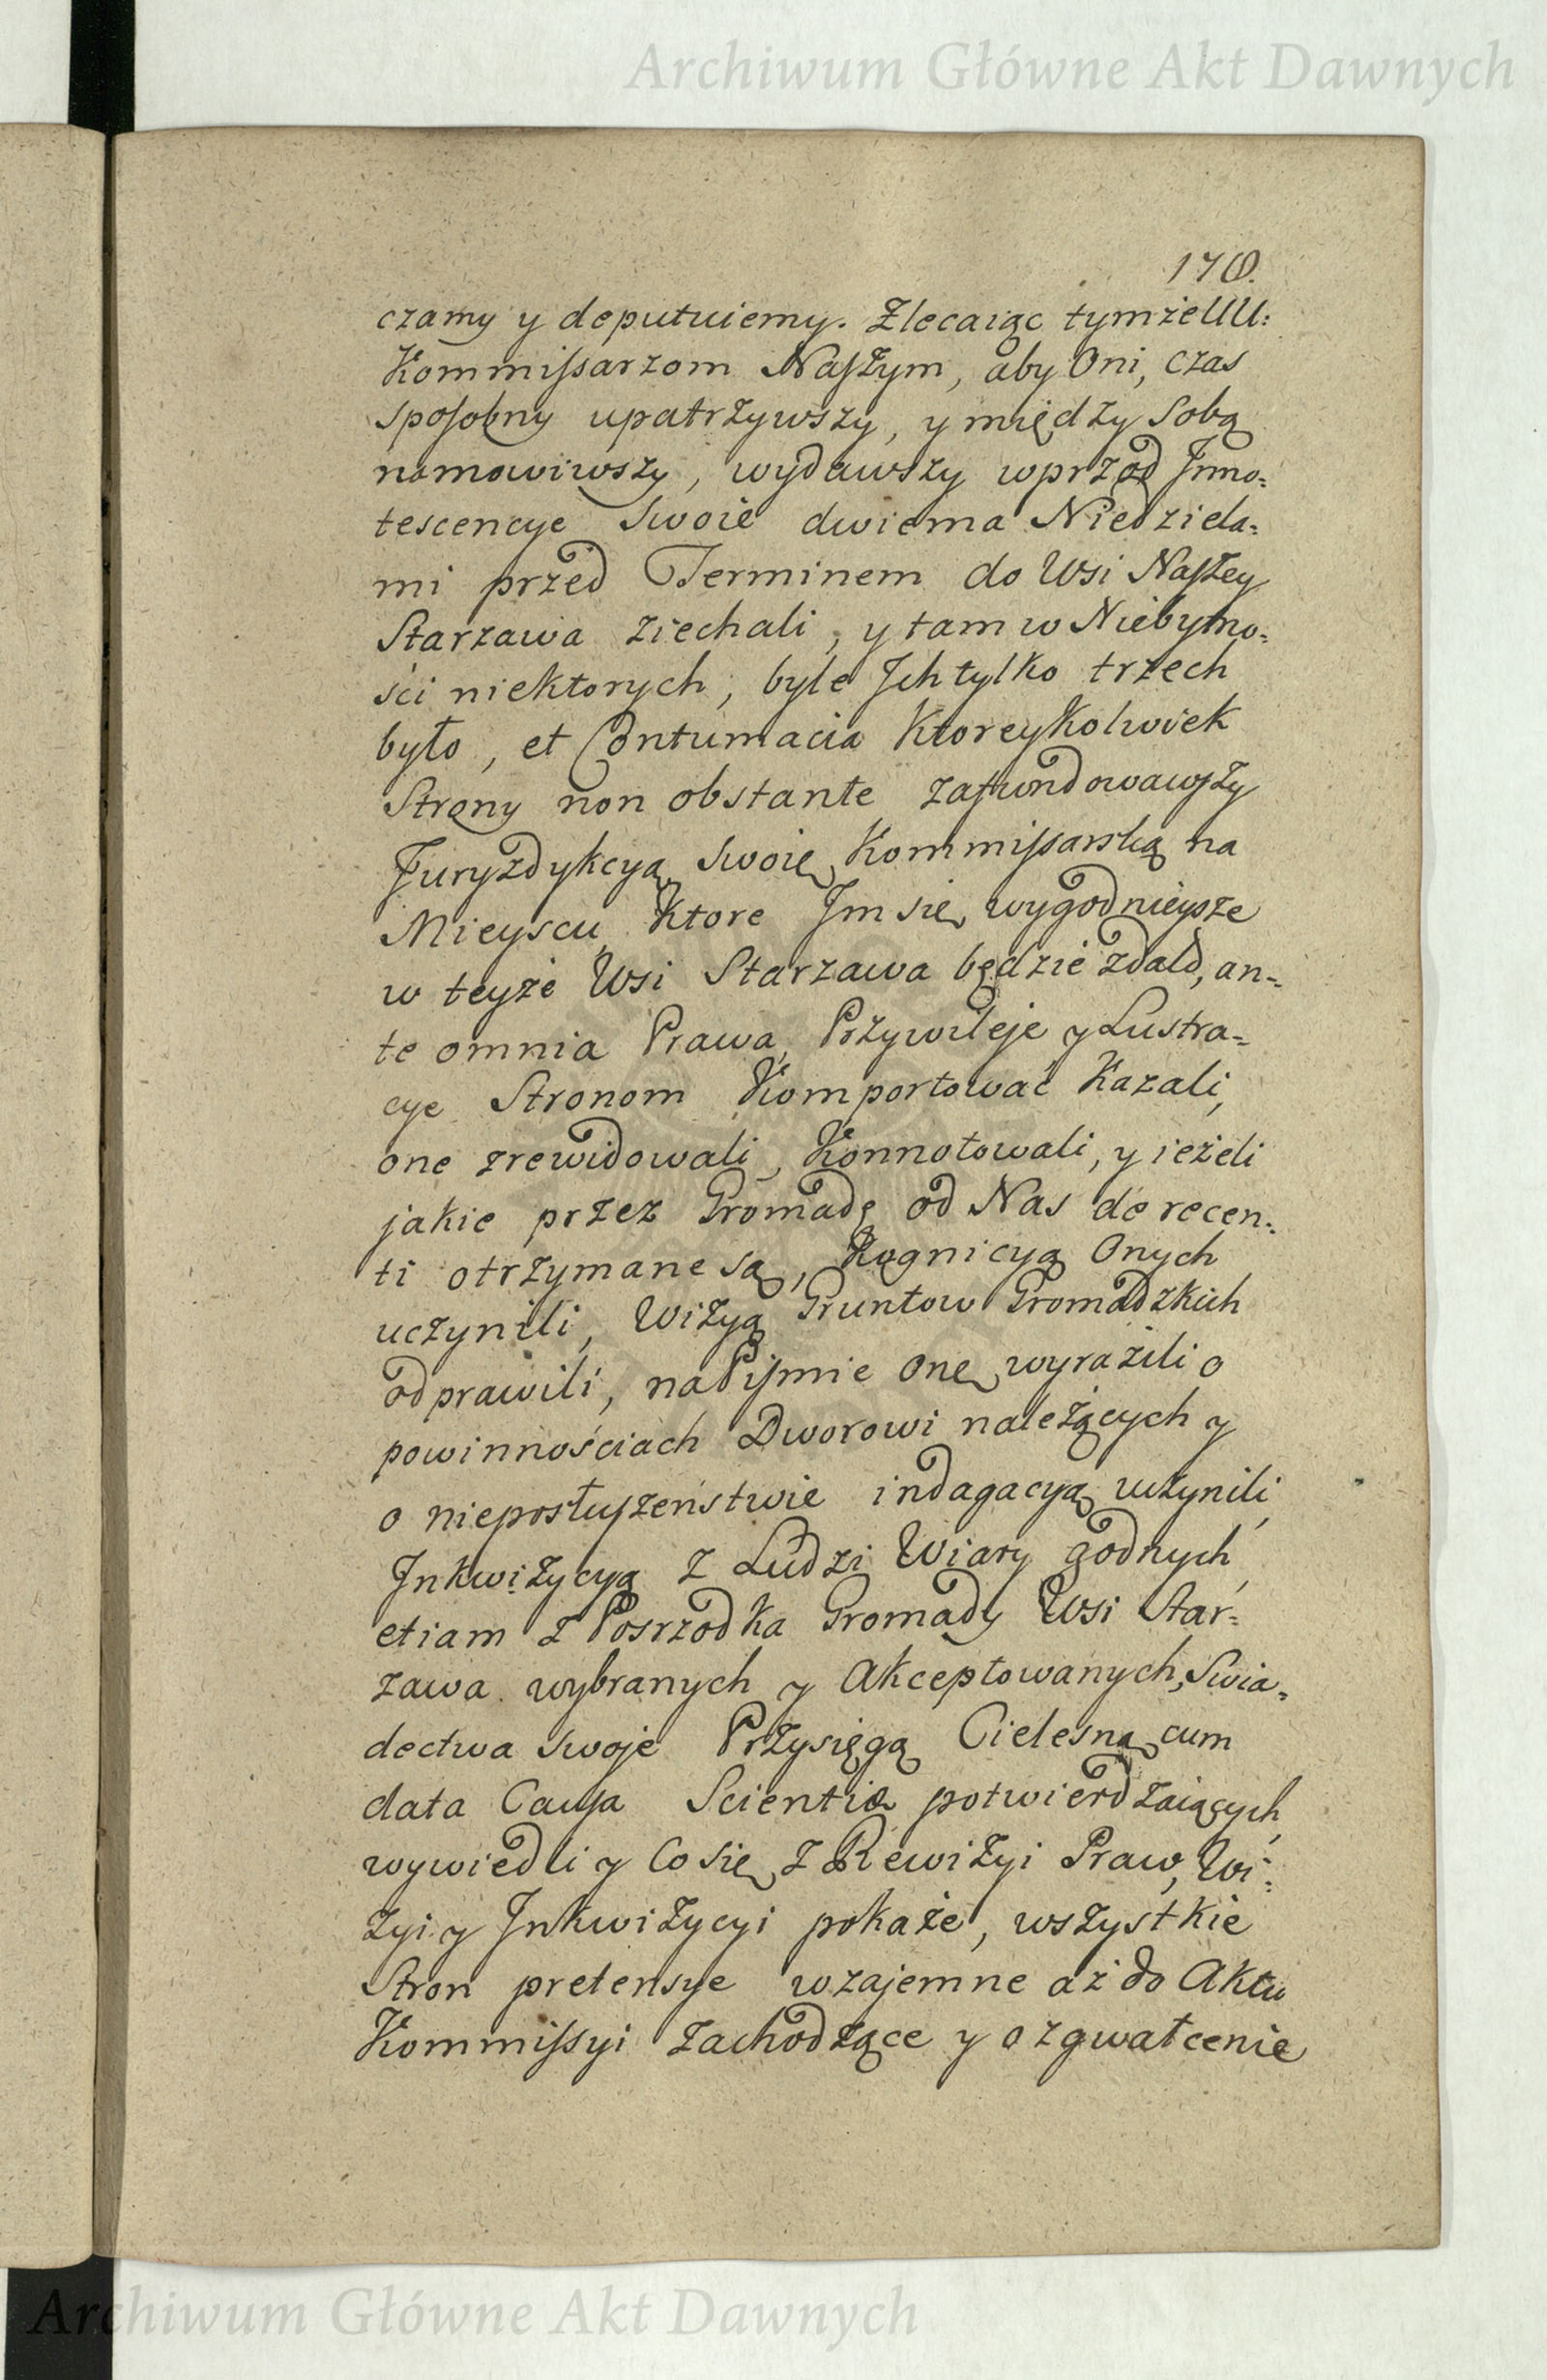 Archiwum Główne Akt Dawnych
170.
czamy y deputuiemy. Zlecaiąc tymże UU:
Kommissarzom Naszym, aby Oni, czas
sposobny upatrzywszy, y między Sobą
namowiwszy, wydawszy wprzod Inno=
tescencye Swoie dwiema Niedziela=
mi przed Terminem do Wsi Naszey
Starzawa ziechali, y tam w Niebytno=
ści niektorych, byle Ich tylko trzech
było, et Contumacia Ktoreykolwiek
Strony non obstante zafundowawszy
Juryzdykcyą Swoię Kommissarską na
Mieyscu, Ktore Im się wygodnieysze
w teyże Wsi Starzawa będzie zdało, an=
te omnia Prawa, Przywileje y Lustra=
cye Stronom Komportować Kazali,
one zrewidowali, Konnotowali, y ieżeli
jakie przez Gromadę od Nas de recen=
ti otrzymane są, Kognicyą Onych
uczynili, Wizyą Gruntow Gromadzkich
odprawili, na Piśmie One wyrazili o
powinnościach Dworowi należących y
o nieposłuszeństwie indagacyą uczynili,
Inkwizycyą z Ludzi Wiary godnych,
etiam z Posrzodka Gromady Wsi Star=
zawa wybranych y Akceptowanych, Swia=
dectwa swoje Przysięgą Cielesną cum
data Causa Scientiæ potwierdzaiących,
wywiedli y Co się z Rewizyi Praw, Wi=
zyi y Inkwizycyi pokaże, wszystkie
Stron pretensye wzajemne aż do Aktu
Kommissyi zachodzące y o zgwałcenie
Archiwum Główne Akt Dawnych